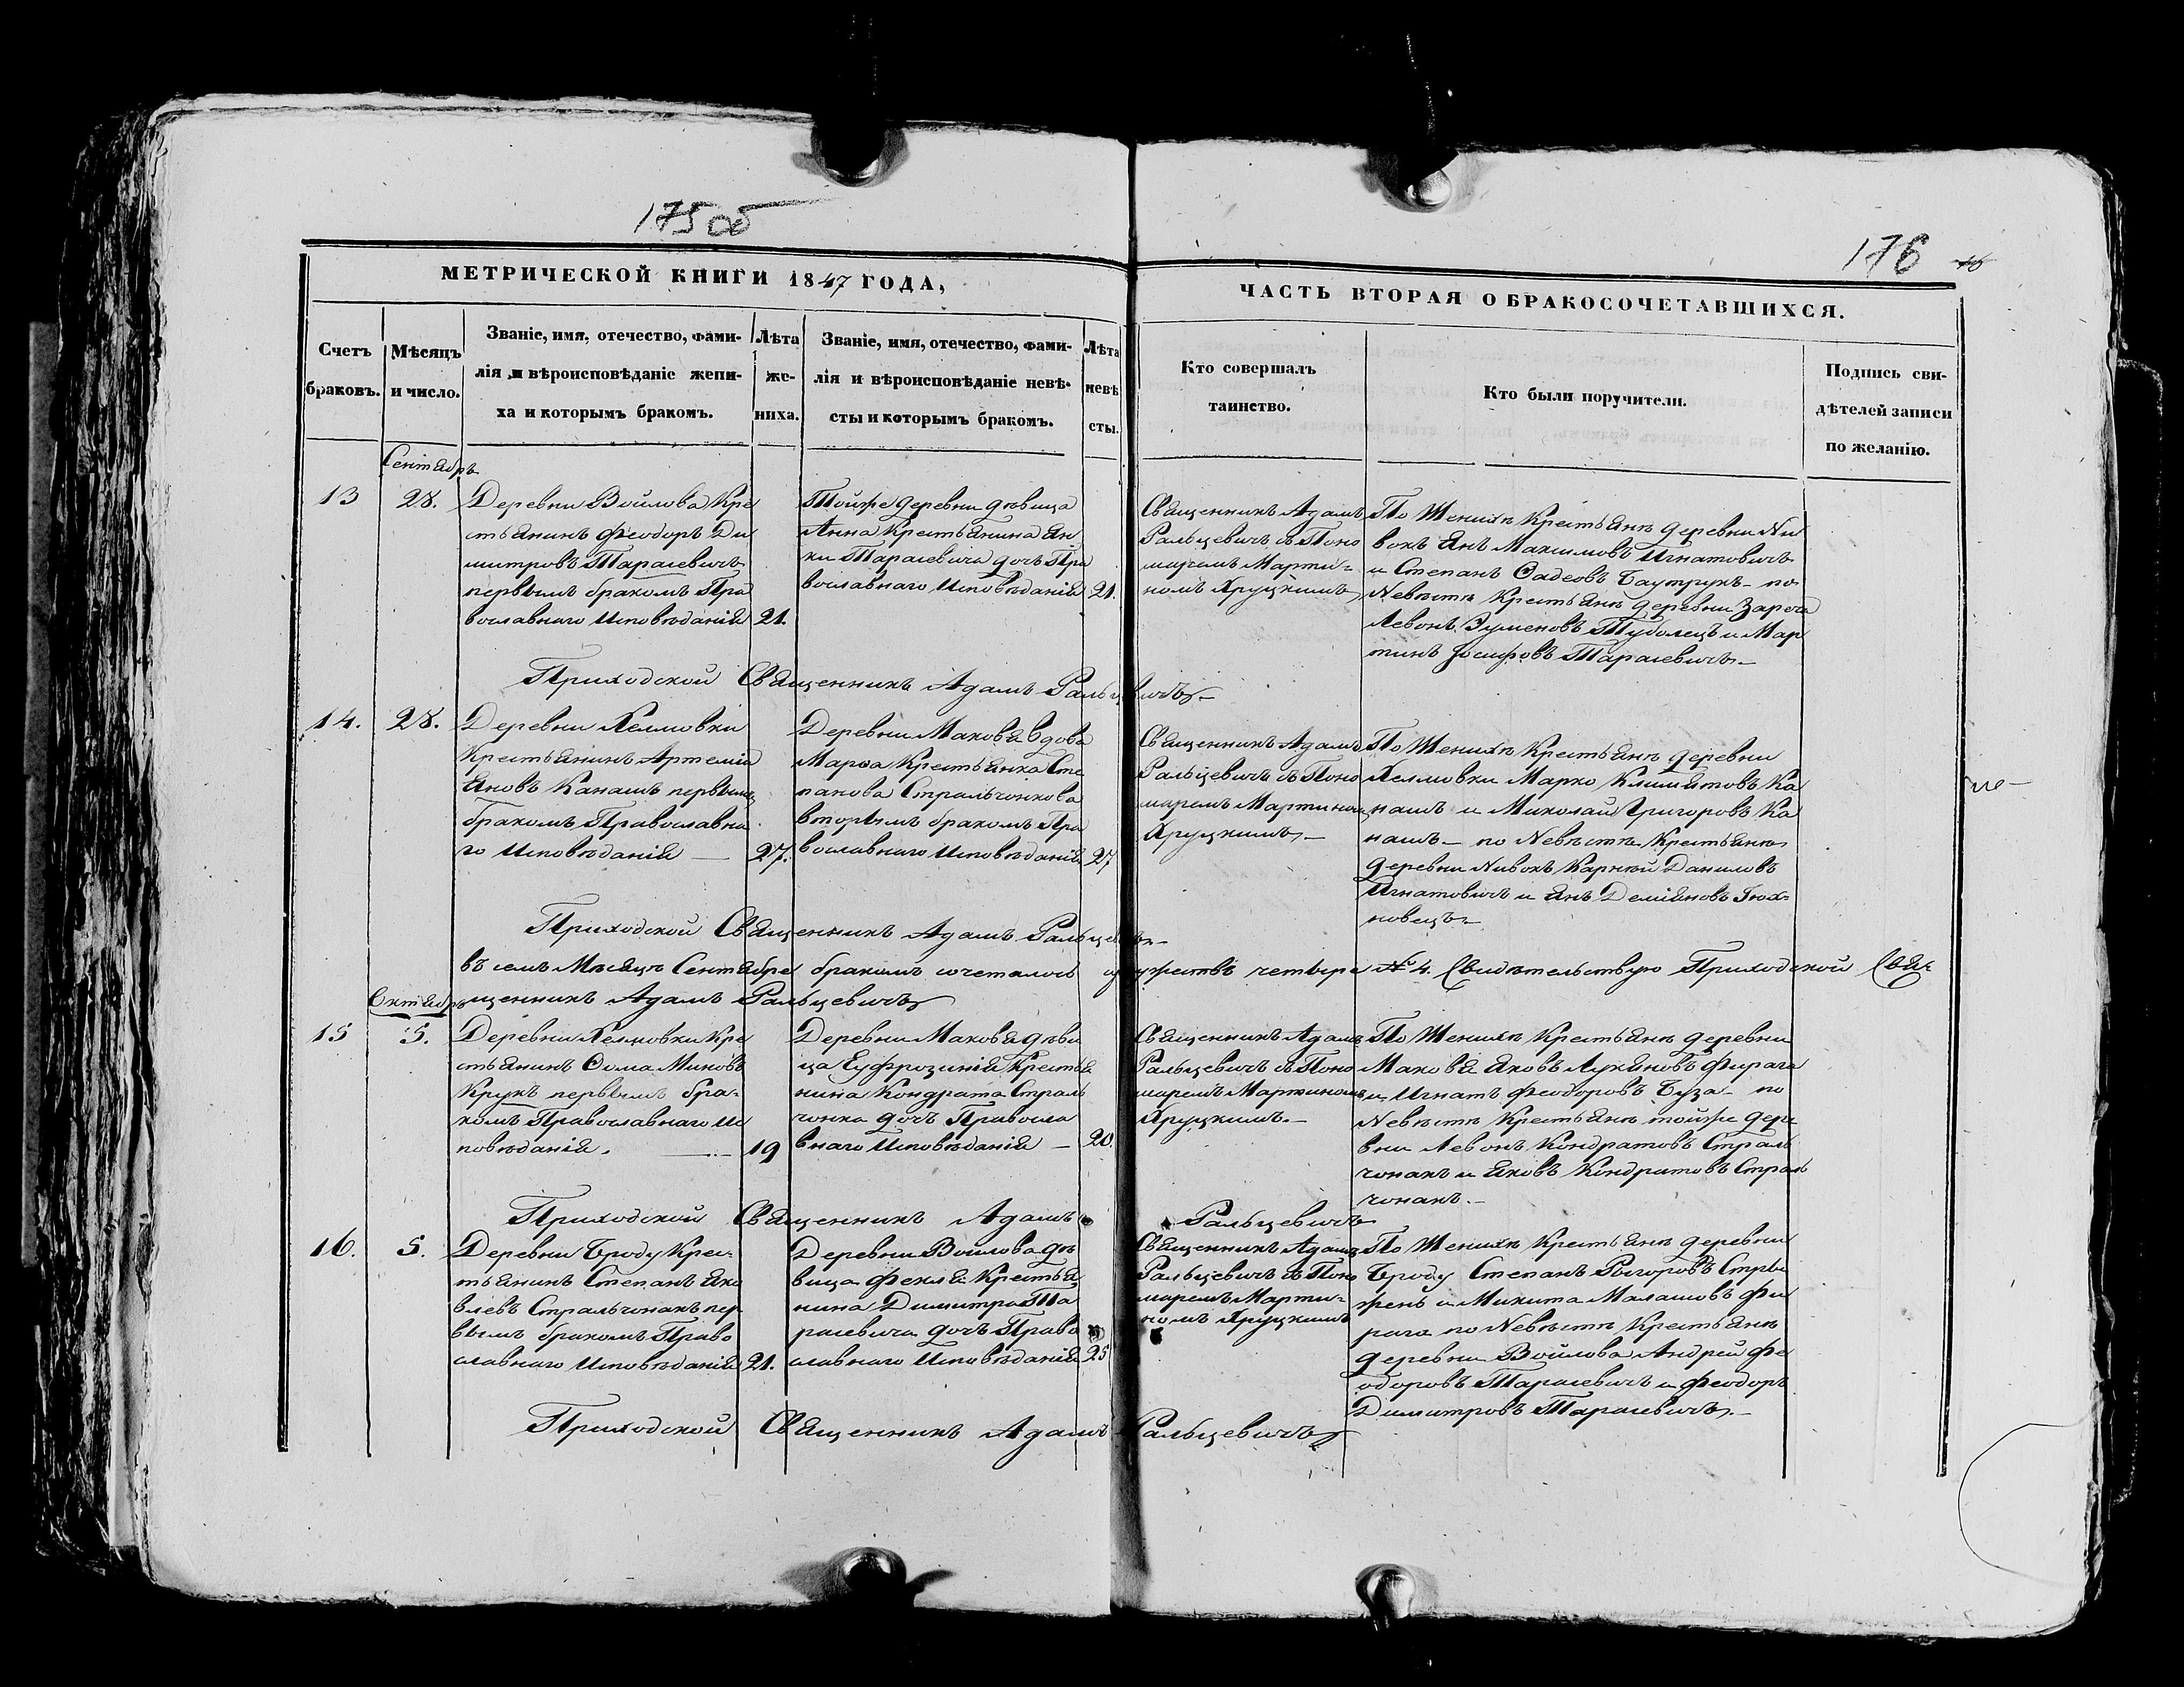 175 об
176 16
МЕТРИЧЕСКОЙ КНИГИ 1847 ГОДА,
ЧАСТЬ ВТОРАЯ О БРАКОСОЧЕТАВШИХСЯ.
Счетъ
браковъ.
Мѣсяцъ
и число.
Званіе, имя, отечество, фами-
лія и вѣроисповѣданіе жени-
ха и которымъ бракомъ.
Лѣта
же-
ниха.
Званіе, имя, отечество, фами-
лія и вѣроисповѣданіе невѣ-
сты и которымъ бракомъ.
Лѣта
невѣ
сты.
Кто совершалъ
таинство.
Кто были поручители.
Подпись сви-
дѣтелей записи
по желанію.
Сентябрь
13
28.
Деревни Войлова Кре
стьянинъ Феодоръ Ди
митровъ Тарасевичъ
первымъ бракомъ Пра
вославнаго Исповѣданія
21.
Тойже деревни дѣвица
Анна Крестьянина Ян
ки Тарасевича дочь Пра
вославнаго Исповѣданія
21.
Священникъ Адамъ
Ральцевичъ съ Поно
маремъ Марти-
номъ Хруцкимъ
По Женихѣ Крестьянѣ деревни Ни
вокъ Янъ Максимовъ Игнатовичъ
и Степанъ Ѳадеовъ Баутрукъ - по
Невѣстѣ Крестьянѣ деревни Зареча
Левонъ Зуменовъ Туболецъ и Мар
тинъ Іосифовъ Тарасевичъ.-
Приходской Священникъ Адамъ Ральцевичъ.-
14.
28.
Деревни Хелмовки
Крестьянинъ Артемій
Яновъ Канашъ первымъ
бракомъ Православна
го Исповѣданія —
27.
Деревни Маковя Вдова
Марѳа Крестьянка Сте
панова Стральчонкова
вторымъ бракомъ Пра
вославнаго Исповѣданія
27
Священникъ Адамъ
Ральцевичъ съ Поно
маремъ Мартиномъ
Хруцкимъ.-
По Женихѣ Крестьянѣ деревни
Хелмовки Марко Климятовъ Ка
нашъ и Миколай Григоровъ Ка
нашъ - по Невѣстѣ Крестьянѣ
деревни Нивокъ Карнѣй Даниловъ
Игнатовичъ и Янъ Демяновъ
новецъ.-
Приходской Священникъ Адамъ Ральцевичъ.-
въ семъ Мѣсяцѣ Сентябре бракомъ сочеталось супружествъ четыре № 4. Свидѣтельствую Приходской Свя-
щенникъ Адамъ Ральцевичъ
Октябрь
15
5.
Деревни Хелмовки Кре
стьянинъ Ѳома Миновъ
Крукъ первымъ бра-
комъ Православнаго Ис
повѣданія.
19
Деревни Маковя дѣви
ца Еуфрозинія Крестья
нина Кондрата Страль
чонка дочь Правосла
внаго Исповѣданія —
20.
Священникъ Адамъ
Ральцевичъ съ Поно
маремъ Мартиномъ
Хруцкимъ.-
По Женихѣ Крестьянѣ деревни
Маковя Яковъ Лукяновъ Фирага
и Игнатъ Феодоровъ Буза - по
Невѣстѣ Крестьянѣ тойже дере
вни Левонъ Кондратовъ Страль
чонакъ и Яковъ Кондратовъ Страль
чонакъ.-
Приходской Священникъ Адамъ Ральцевичъ
16.
5.
Деревни Броду Крес-
тьянинъ Степанъ Яко
влевъ Стральчонакъ пер
вымъ бракомъ Право
славнаго Исповѣданія
21.
Деревни Войлова дѣ
вица Фекля Крестья
нина Димитра Та
расевича дочь Право
славнаго Исповѣданія
25
Священникъ Адамъ
Ральцевичъ съ Поно
маремъ Марти-
номъ Хруцкимъ
По Женихѣ Крестьянѣ деревни
Броду Степанъ Ригоровъ Стры
жень и Микита Малашовъ Фи
рага по Невѣстѣ Крестьянѣ
деревни Войлова Андрей Фе
одоровъ Тарасевичъ и Феодоръ
Димитровъ Тарасевичъ.-
Приходской Священникъ Адамъ Ральцевичъ